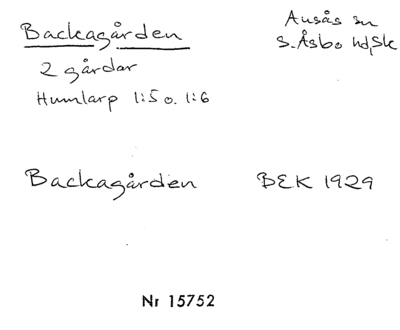 Backagården
Ausås sn
S. Åsbo hd, Sk
2 gårdar
Humlarp 1:5 o. 1:6
Backagården BEK 1929
Nr 15752